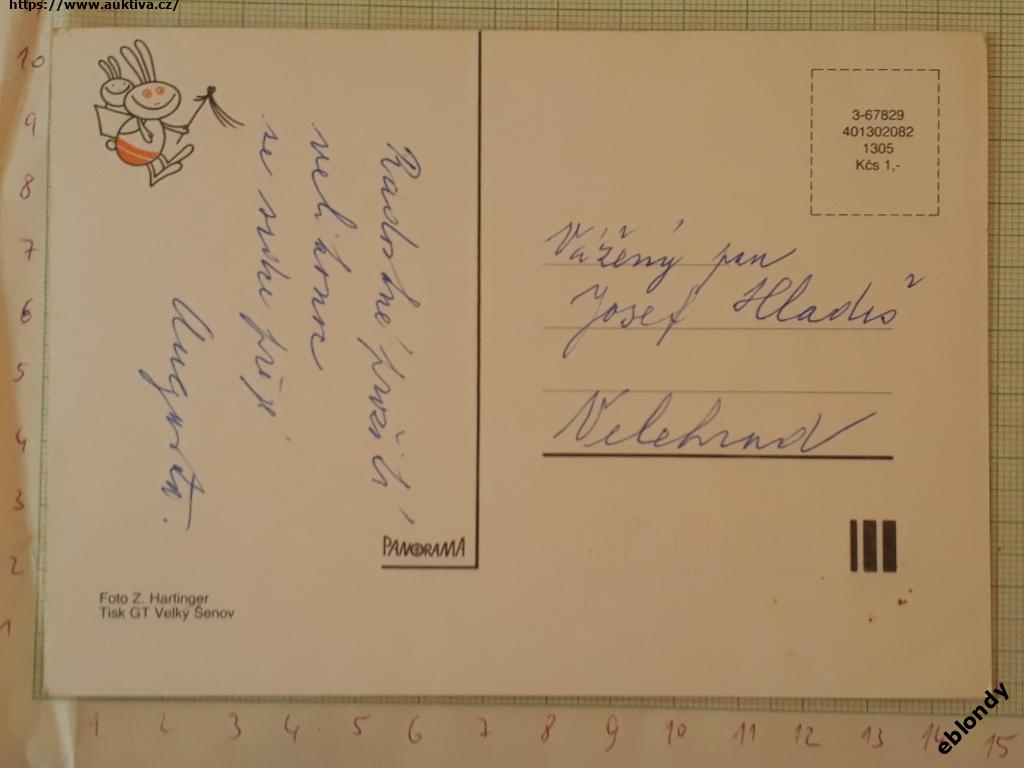 https://www.auktiva.cz/
Radostné prožití
velikonoc
ze srdce přeje
Augusta.
3-67829
401302082
1305
Kčs 1,-
Vážený pan
Josef Hladiš
Velehrad
PANORAMA
Foto Z. Hartinger
Tisk GT Velký Šenov
10
9
8
7
6
5
4
3
2
1
1 2 3 4 5 6 7 8 9 10 11 12 13 14 15
eblondy